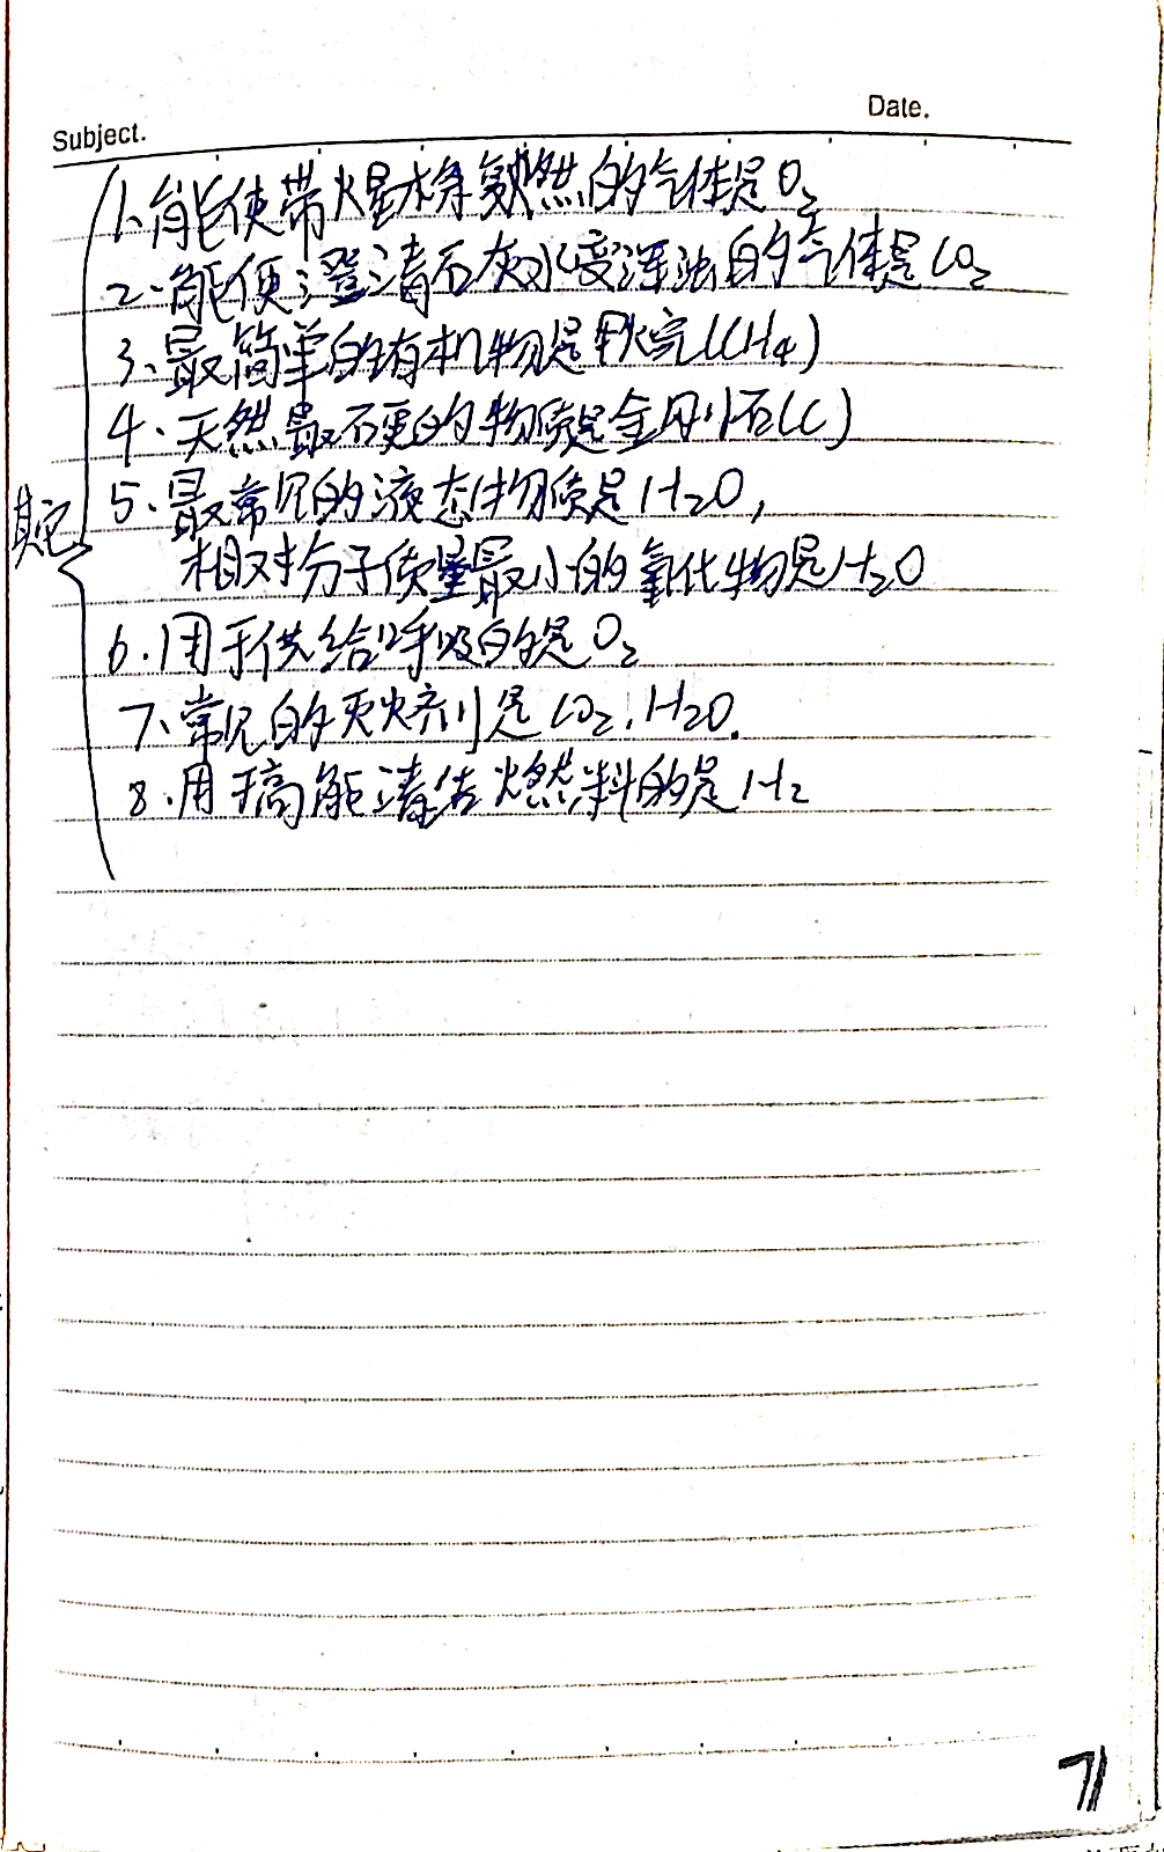 Subject.
Date.
1、能使带火星木条复燃的气体是O₂
2、能使澄清石灰水变浑浊的气体是CO₂
3、最简单的有机物是甲烷(CH₄)
4、天然最硬的物质是金刚石(C)
其它
5、最常见的液态物质是H₂O,
相对分子质量最小的氧化物是H₂O
6.用于供给呼吸的是O₂
7、常见的灭火剂是CO₂、H₂O.
8、用于高能清洁燃料的是H₂
71